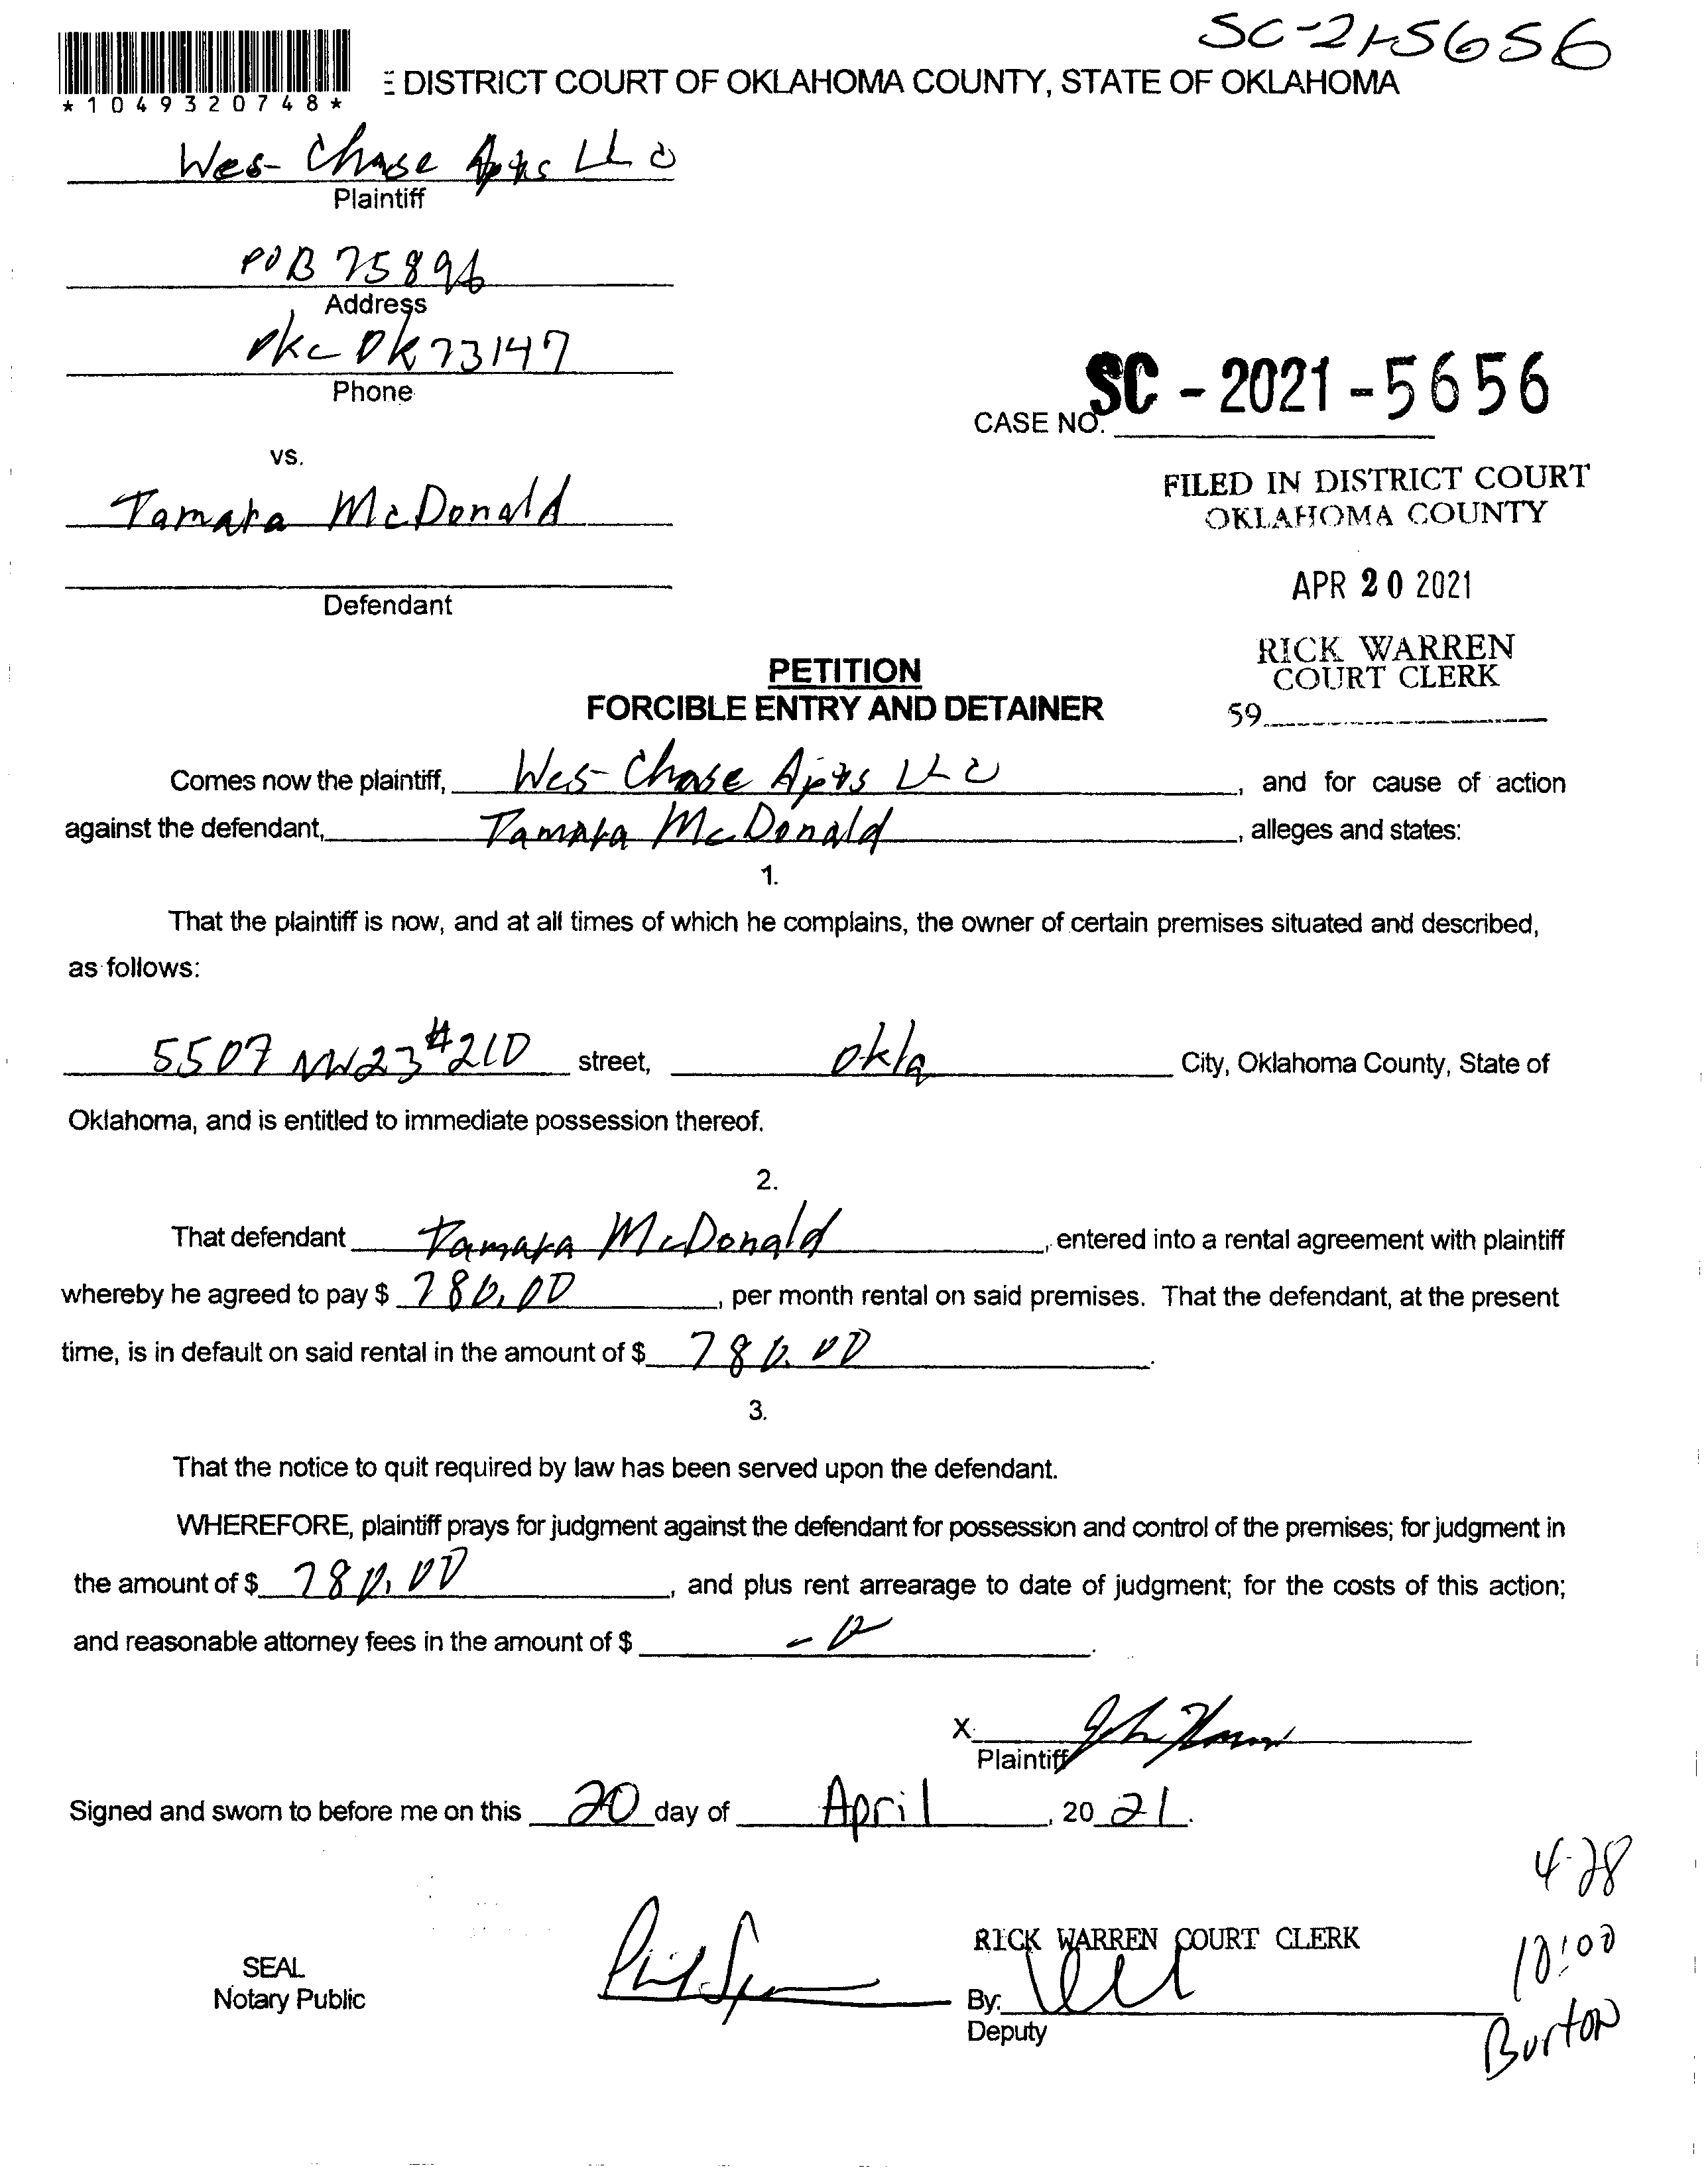 SC-21-5656
*1049320748*
E DISTRICT COURT OF OKLAHOMA COUNTY, STATE OF OKLAHOMA
Wes-Chase Apts LLC
Plaintiff
POB 75896
Address
OKC OK 73147
Phone
SC - 2021 - 5656
CASE NO.
vs.
FILED IN DISTRICT COURT
OKLAHOMA COUNTY
Tamara McDonald
APR 20 2021
Defendant
RICK WARREN
COURT CLERK
59
PETITION
FORCIBLE ENTRY AND DETAINER
Comes now the plaintiff, Wes-Chase Apts LLC, and for cause of action
against the defendant, Tamara McDonald, alleges and states:
1.
That the plaintiff is now, and at all times of which he complains, the owner of certain premises situated and described,
as follows:
5507 NW23 #210 street, Okla City, Oklahoma County, State of
Oklahoma, and is entitled to immediate possession thereof.
2.
That defendant Tamara McDonald, entered into a rental agreement with plaintiff
whereby he agreed to pay $ 780.00, per month rental on said premises. That the defendant, at the present
time, is in default on said rental in the amount of $ 780.00.
3.
That the notice to quit required by law has been served upon the defendant.
WHEREFORE, plaintiff prays for judgment against the defendant for possession and control of the premises; for judgment in
the amount of $ 780.00, and plus rent arrearage to date of judgment; for the costs of this action;
and reasonable attorney fees in the amount of $ -0.
X
Plaintiff
Signed and sworn to before me on this 20 day of April, 20 21.
4-28
10:00
Burton
RICK WARREN COURT CLERK
SEAL
Notary Public
By:
Deputy